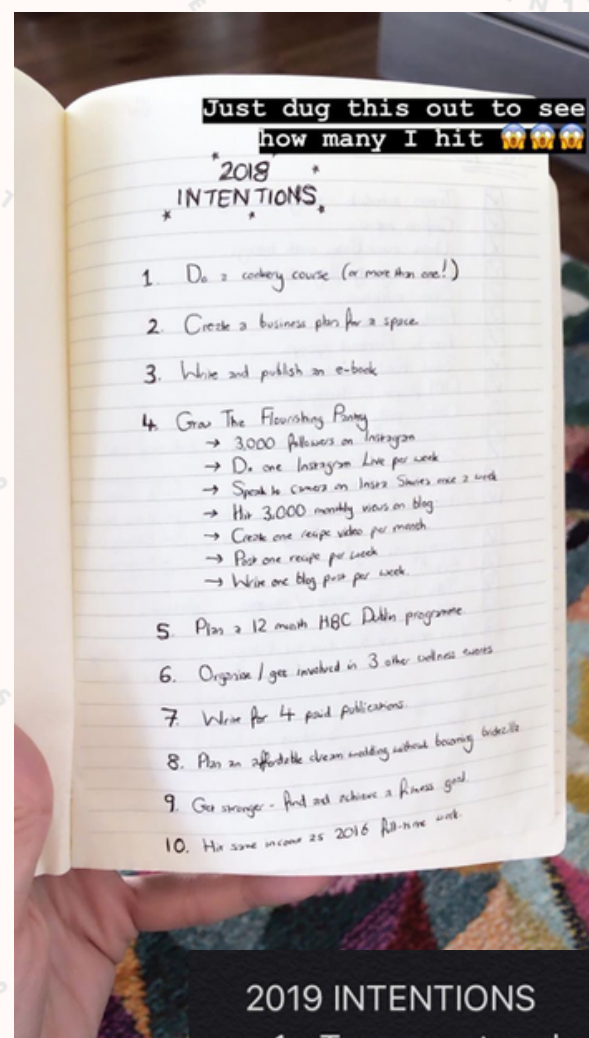 Just dug this out to see
how many I hit 😱😱😱
2018
INTENTIONS
1. Do a cookery course (or more than one!)
2. Create a business plan for a space.
3. Write and publish an e-book
4. Grow The Flourishing Pantry
→ 3,000 followers on Instagram
→ Do one Instagram Live per week
→ Speak to camera on Insta Stories once a week
→ Hit 3,000 monthly views on blog
→ Create one recipe video per month
→ Post one recipe per week
→ Write one blog post per week.
5. Plan a 12 month HBC Dublin programme
6. Organise / get involved in 3 other wellness events
7. Write for 4 paid publications.
8. Plan an affordable dream wedding without becoming bridezilla
9. Get stronger - find and achieve a fitness goal.
10. Hit same income as 2016 full-time work.
2019 INTENTIONS